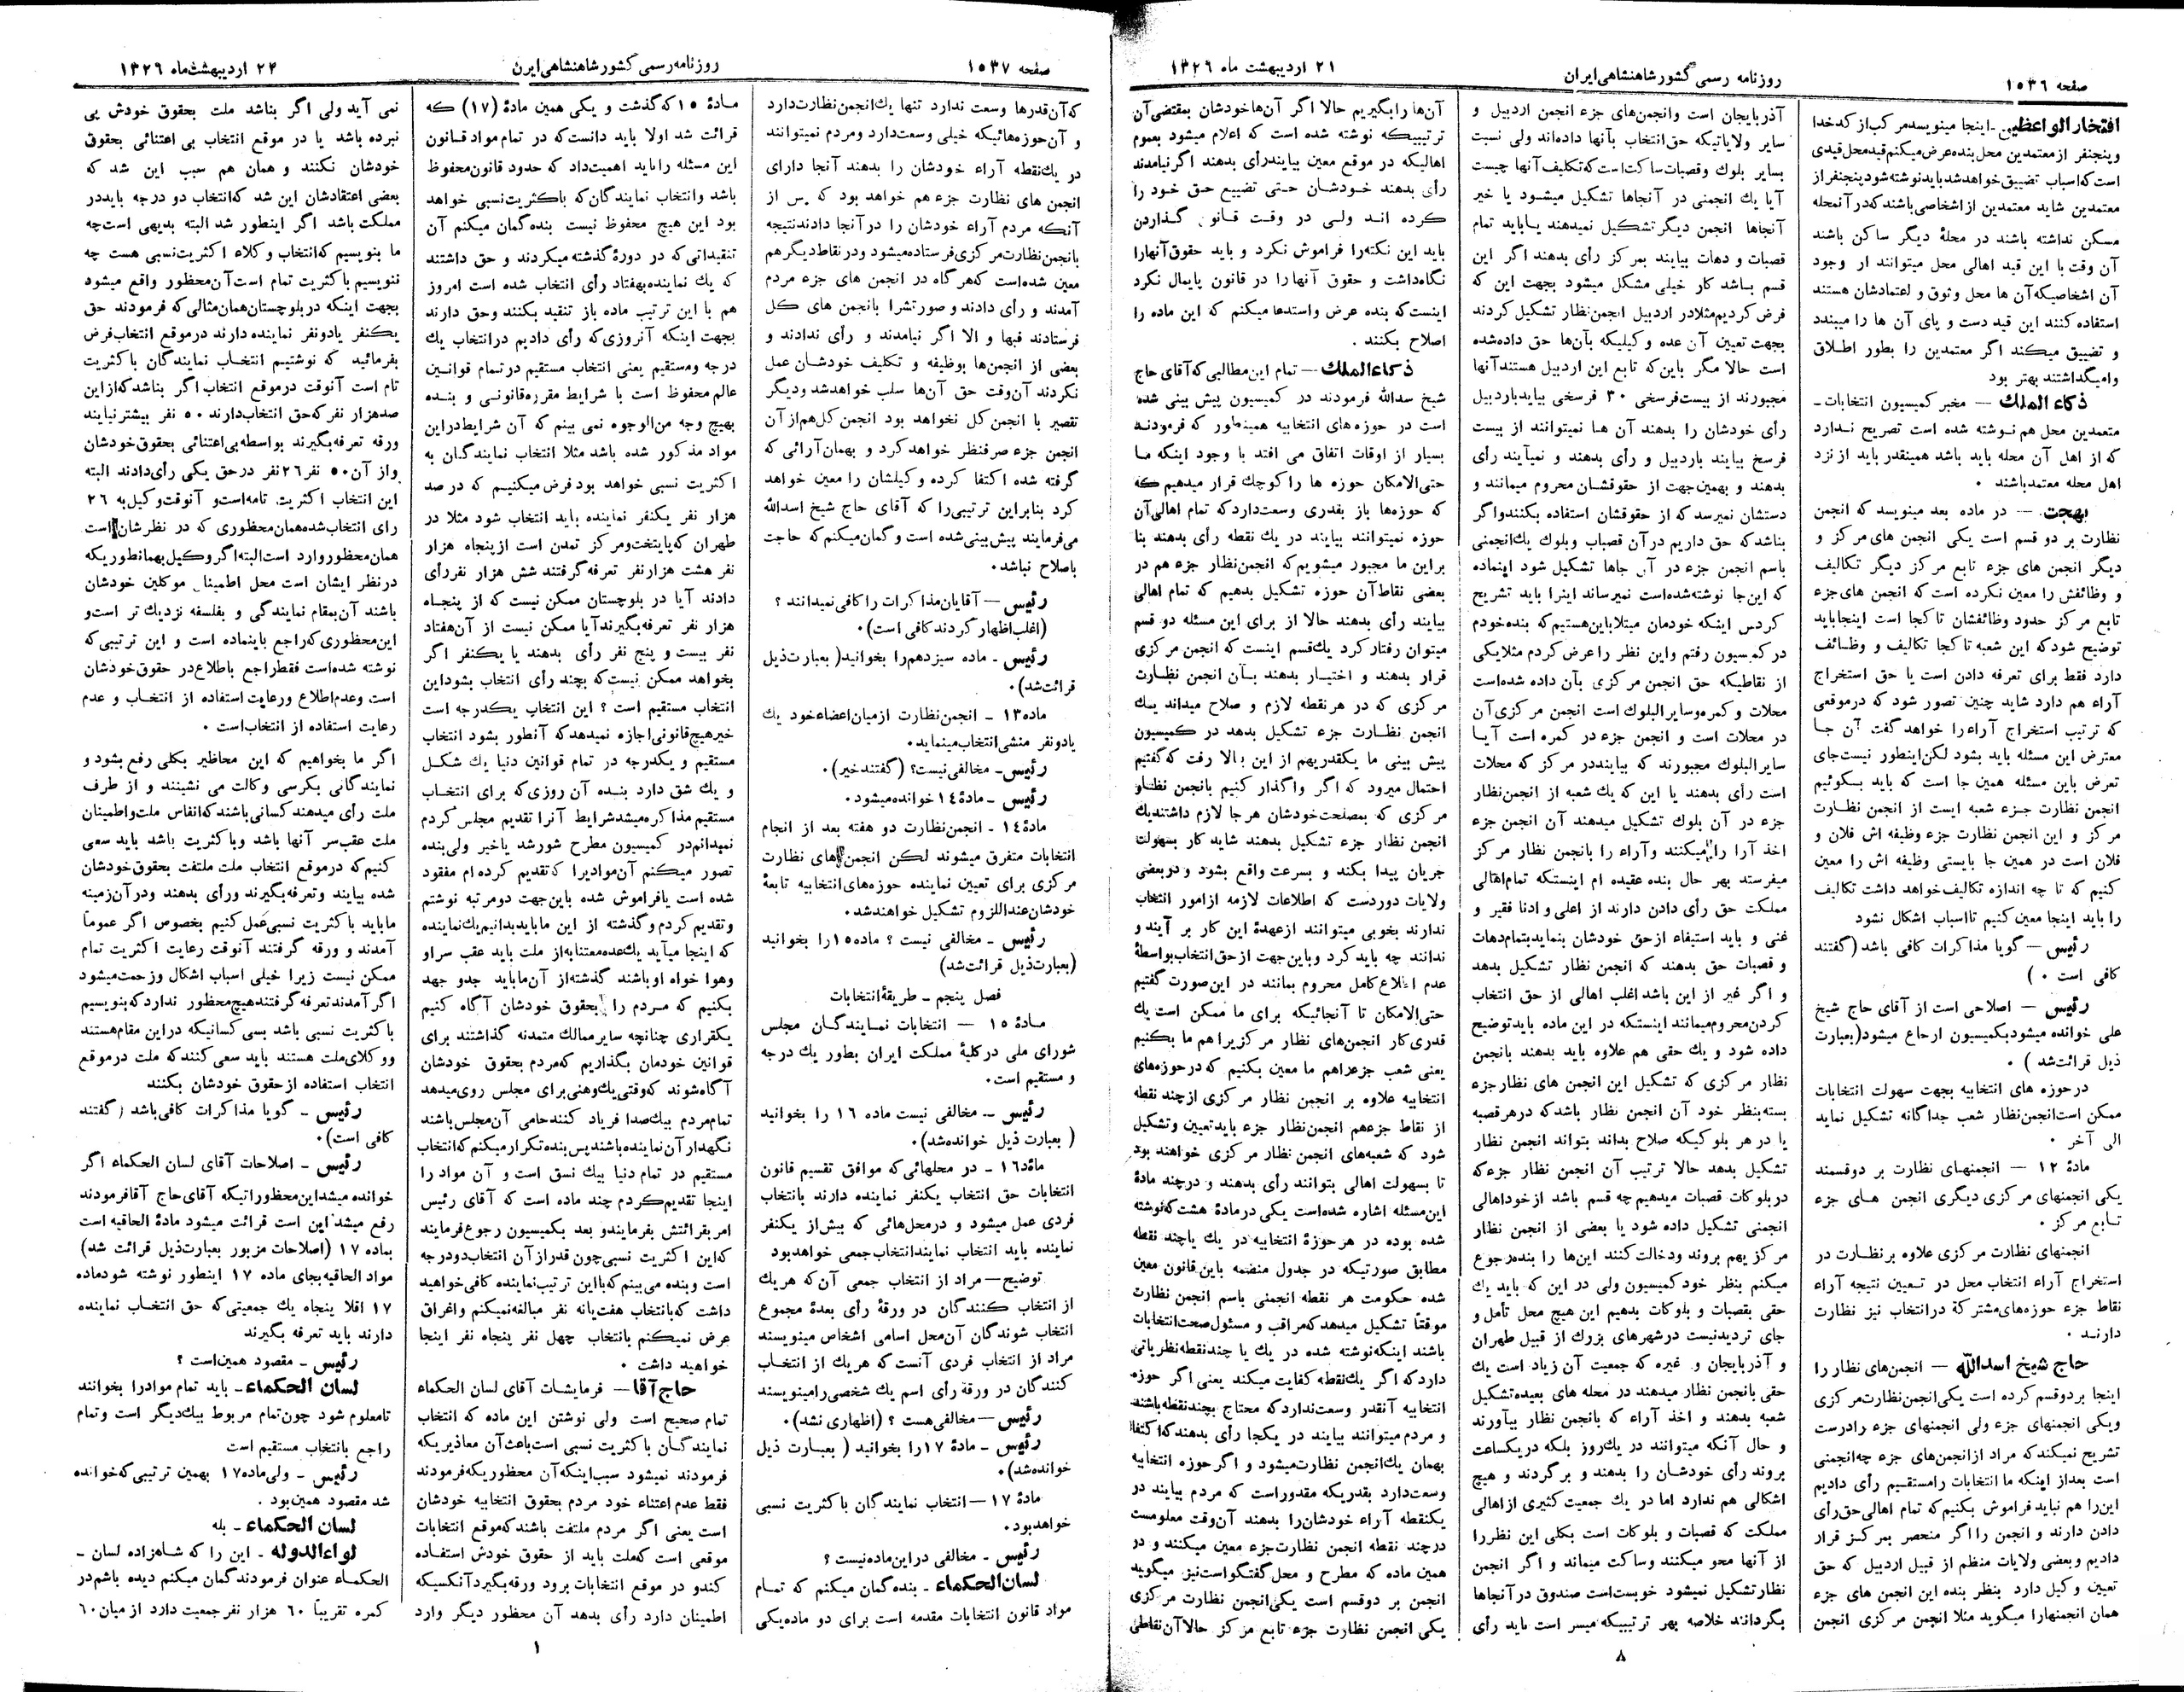 صفحه ۱۵۳۶
روزنامه رسمی کشور شاهنشاهی ایران
۲۱ اردیبهشت ماه ۱۳۲۶
افتخار الواعظین ـ اینجا مینویسد مرکب از کدخدا
و پنجنفر از معتمدین محل بنده عرض میکنم قید محل قیدی
است که اسباب تضییق خواهد شد باید نوشته شود پنجنفر از
معتمدین شاید معتمدین از اشخاصی باشند که در آنمحله
مسکن نداشته باشند در محلهٔ دیگر ساکن باشند
آن وقت با این قید اهالی محل میتوانند از وجود
آن اشخاصیکه آن ها محل وثوق و اعتمادشان هستند
استفاده کنند این قید دست و پای آن ها را میبندد
و تضییق میکند اگر معتمدین را بطور اطلاق
وامیگذاشتند بهتر بود
ذکاء الملک — مخبر کمیسیون انتخابات ـ
متعمدین محل هم نوشته شده است تصریح ندارد
که از اهل آن محله باید باشد همینقدر باید از نزد
اهل محله معتمد باشند ۰
بهجت — در ماده بعد مینویسد که انجمن
نظارت بر دو قسم است یکی انجمن های مرکز و
دیگر انجمن های جزء تابع مرکز دیگر تکالیف
و وظائفش را معین نکرده است که انجمن های جزء
تابع مرکز حدود وظائفشان تا کجا است اینجا باید
توضیح شود که این شعبه تا کجا تکالیف و وظائف
دارد فقط برای تعرفه دادن است یا حق استخراج
آراء هم دارد شاید چنین تصور شود که در موقعی
که ترتیب استخراج آراء را خواهد گفت آن جا
معترض این مسئله باید بشود لکن اینطور نیست جای
تعرض باین مسئله همین جا است که باید بگوئیم
انجمن نظارت جزء شعبه ایست از انجمن نظارت
مرکز و این انجمن نظارت جزء وظیفه اش فلان و
فلان است در همین جا بایستی وظیفه اش را معین
کنیم که تا چه اندازه تکالیف خواهد داشت تکالیف
را باید اینجا معین کنیم تا اسباب اشکال نشود
رئیس — گویا مذاکرات کافی باشد (گفتند
کافی است ۰ )
رئیس — اصلاحی است از آقای حاج شیخ
علی خوانده میشود بکمیسیون ارجاع میشود (بعبارت
ذیل قرائت شد ) ۰
در حوزه های انتخابیه بجهت سهولت انتخابات
ممکن است انجمن نظار شعب جداگانه تشکیل نماید
الی آخر ۰
مادهٔ ۱۲ — انجمنهای نظارت بر دوقسمند
یکی انجمنهای مرکزی دیگری انجمن های جزء
تابع مرکز ۰
انجمنهای نظارت مرکزی علاوه بر نظارت در
استخراج آراء انتخاب محل در تعیین نتیجه آراء
نقاط جزء حوزه های مشترکهٔ در انتخاب نیز نظارت
دارند ۰
حاج شیخ اسدالله — انجمن های نظار را
اینجا بر دوقسم کرده است یکی انجمن نظارت مرکزی
ویکی انجمنهای جزء ولی انجمنهای جزء را درست
تشریح نمیکند که مراد از انجمن های جزء چه انجمنی
است بعد از اینکه ما انتخابات را مستقیم رأی دادیم
این را هم نباید فراموش بکنیم که تمام اهالی حق رأی
دادن دارند و انجمن را اگر منحصر بمرکز قرار
دادیم و بعضی ولایات منظم از قبیل اردبیل که حق
تعیین وکیل دارد بنظر بنده این انجمن های جزء
همان انجمنهارا میگوید مثلا انجمن مرکزی انجمن
آذربایجان است و انجمن های جزء انجمن اردبیل و
سایر ولایاتیکه حق انتخاب بآنها داده اند ولی نسبت
بسایر بلوک وقصبات ساکت است که تکلیف آنها چیست
آیا یک انجمنی در آنجاها تشکیل میشود یا خیر
آنجاها انجمن دیگر تشکیل نمیدهند یا باید تمام
قصبات و دهات بیایند بمرکز رأی بدهند اگر این
قسم باشد کار خیلی مشکل میشود بجهت این که
فرض کردیم مثلا در اردبیل انجمن نظار تشکیل کردند
بجهت تعیین آن عده وکیلیکه بآن ها حق داده شده
است حالا مگر باین که تابع این اردبیل هستند آنها
مجبورند از بیست فرسخی ۳۰ فرسخی بیاید باردبیل
رأی خودشان را بدهند آن ها نمیتوانند از بیست
فرسخ بیایند باردبیل و رأی بدهند و نمیآیند رأی
بدهند و بهمین جهت از حقوقشان محروم میمانند و
دستشان نمیرسد که از حقوقشان استفاده بکنند واگر
بناشد که حق داریم در آن قصبات وبلوک یک انجمنی
باسم انجمن جزء در آن جاها تشکیل شود اینماده
که این جا نوشته شده است نمیرساند اینرا باید تشریح
کردس اینکه خودمان مبتلا باین هستیم که بنده خودم
در کمیسیون رفتم واین نظر را عرض کردم مثلا یکی
از نقاطیکه حق انجمن مرکزی بآن داده شده است
محلات و کمره وسایر البلوک است انجمن مرکزی آن
در محلات است و انجمن جزء در کمره است آیا
سایر البلوک مجبورند که بیایند در مرکز که محلات
است رأی بدهند یا این که یک شعبه از انجمن نظار
جزء در آن بلوک تشکیل میدهند آن انجمن جزء
اخذ آرا را میکنند و آراء را بانجمن نظار مرکز
میفرستد بهر حال بنده عقیده ام اینستکه تمام اهالی
مملکت حق رأی دادن دارند از اعلی و ادنا فقیر و
غنی و باید استیفاء از حق خودشان بنماید بتمام دهات
و قصبات حق بدهند که انجمن نظار تشکیل بدهد
و اگر غیر از این باشد اغلب اهالی از حق انتخاب
کردن محروم میمانند اینستکه در این ماده باید توضیح
داده شود و یک حقی هم علاوه باید بدهند بانجمن
نظار مرکزی که تشکیل این انجمن های نظار جزء
بسته بنظر خود آن انجمن نظار باشد که در هر قصبه
یا در هر بلوکیکه صلاح بداند بتواند انجمن نظار
تشکیل بدهد حالا ترتیب آن انجمن نظار جزء که
در بلوکات قصبات میدهیم چه قسم باشد از خود اهالی
انجمنی تشکیل داده شود یا بعضی از انجمن نظار
مرکز بهم بروند ودخالت کنند این ها را بنده رجوع
میکنم بنظر خود کمیسیون ولی در این که باید یک
حقی بقصبات و بلوکات بدهیم این هیچ محل تأمل و
جای تردید نیست در شهرهای بزرک از قبیل طهران
و آذربایجان و غیره که جمعیت آن زیاد است یک
حقی بانجمن نظار میدهند در محله های بعیده تشکیل
شعبه بدهند و اخذ آراء که بانجمن نظار بیآورند
و حال آنکه میتوانند در یک روز بلکه در یکساعت
بروند رأی خودشان را بدهند و برگردند و هیچ
اشکالی هم ندارد اما در یک جمعیت کثیری از اهالی
مملکت که قصبات و بلوکات است بکلی این نظر را
از آنها محو میکنند وساکت میماند و اگر انجمن
نظار تشکیل نمیشود خوبست است صندوق در آنجاها
بگردانند خلاصه بهر ترتیبیکه میسر است باید رأی
آن ها را بگیریم حالا اگر آن ها خودشان بمقتضی آن
ترتیبیکه نوشته شده است که اعلام میشود بعموم
اهالیکه در موقع معین بیایند رأی بدهند اگر نیامدند
رأی بدهند خودشان حتی تضییع حق خود را
کرده اند ولی در وقت قانون گذاردن
باید این نکته را فراموش نکرد و باید حقوق آنهارا
نگاه داشت و حقوق آنها را در قانون پایمال نکرد
اینست که بنده عرض واستدعا میکنم که این ماده را
اصلاح بکنند ۰
ذکاء الملک — تمام این مطالبی که آقای حاج
شیخ سدالله فرمودند در کمیسیون پیش بینی شده
است در حوزه های انتخابیه همینطور که فرمودند
بسیار از اوقات اتفاق می افتد با وجود اینکه ما
حتی الامکان حوزه ها را کوچک قرار میدهیم که
که حوزه ها باز بقدری وسعت دارد که تمام اهالی آن
حوزه نمیتوانند بیایند در یک نقطه رأی بدهند بنا
براین ما مجبور میشویم که انجمن نظار جزء هم در
بعضی نقاط آن حوزه تشکیل بدهیم که تمام اهالی
بیایند رأی بدهند حالا از برای این مسئله دو قسم
میتوان رفتار کرد یک قسم اینست که انجمن مرکزی
قرار بدهند و اختیار بدهند بآن انجمن نظارت
مرکزی که در هر نقطه لازم و صلاح میداند یک
انجمن نظارت جزء تشکیل بدهد در کمیسیون
پیش بینی ما یکقدریهم از این بالا رفت که گفتیم
احتمال میرود که اگر واگذار کنیم بانجمن نظار
مرکزی که بمصلحت خودشان هر جا لازم داشتند یک
انجمن نظار جزء تشکیل بدهند شاید کار بسهولت
جریان پیدا بکند و بسرعت واقع بشود و در بعضی
ولایات دوردست که اطلاعات لازمه از امور انتخاب
ندارند بخوبی میتوانند از عهدهٔ این کار بر آیند و
ندانند چه باید کرد و باین جهت از حق انتخاب بواسطهٔ
عدم اطلاع کامل محروم بمانند در این صورت گفتیم
حتی الامکان تا آنجائیکه برای ما ممکن است یک
قدری کار انجمن های نظار مرکزیرا هم ما بکنیم
یعنی شعب جزء را هم ما معین بکنیم که در حوزه های
انتخابیه علاوه بر انجمن نظار مرکزی از چند نقطه
از نقاط جزء هم انجمن نظار جزء باید تعیین وتشکیل
شود که شعبه های انجمن نظار مرکزی خواهند بود
تا بسهولت اهالی بتوانند رأی بدهند و در چند مادهٔ
این مسئله اشاره شده است یکی در مادهٔ هشت که نوشته
شده بوده در هر حوزهٔ انتخابیه در یک یا چند نقطه
مطابق صورتیکه در جدول منضمه باین قانون معین
شده حکومت هر نقطه انجمنی باسم انجمن نظارت
موقتاً تشکیل میدهد که مراقب و مسئول صحت انتخابات
باشند اینکه نوشته شده در یک یا چند نقطه نظر باتی
دارد که اگر یک نقطه کفایت میکند یعنی اگر حوزه
انتخابیه آنقدر وسعت ندارد که محتاج بچند نقطه باشند
و مردم میتوانند بیایند در یکجا رأی بدهند که اکتفا
بهمان یک انجمن نظارت میشود و اگر حوزه انتخابیه
وسعت دارد بقدریکه مقدور است که مردم بیایند در
یکنقطه آراء خودشان را بدهند آن وقت معلومست
در چند نقطه انجمن نظارت جزء معین میکنند و در
همین ماده که مطرح و محل گفتگو است نیز میگوید
انجمن بر دوقسم است یکی انجمن نظارت مرکزی
یکی انجمن نظارت جزء تابع مرکز حالا آن نقاطی
۸
صفحه ۱۵۳۷
روزنامه رسمی کشور شاهنشاهی ایرن
۲۴ اردیبهشت ماه ۱۳۲۶
که آن قدرها وسعت ندارد تنها یک انجمن نظارت دارد
و آن حوزه هائیکه خیلی وسعت دارد و مردم نمیتوانند
در یک نقطه آراء خودشان را بدهند آنجا دارای
انجمن های نظارت جزء هم خواهد بود که پس از
آنکه مردم آراء خودشان را در آنجا دادند نتیجه
بانجمن نظارت مرکزی فرستاده میشود و در نقاط دیگر هم
معین شده است که هرگاه در انجمن های جزء مردم
آمدند و رأی دادند و صورتشرا بانجمن های کل
فرستادند فبها و الا اگر نیامدند و رأی ندادند و
بعضی از انجمن ها بوظیفه و تکلیف خودشان عمل
نکردند آن وقت حق آن ها سلب خواهد شد و دیگر
تقصیر با انجمن کل نخواهد بود انجمن کل هم از آن
انجمن جزء صرفنظر خواهد کرد و بهمان آرائی که
گرفته شده اکتفا کرده و کیلشان را معین خواهد
کرد بنابراین ترتیبی را که آقای حاج شیخ اسدالله
می فرمایند پیش بینی شده است و گمان میکنم که حاجت
باصلاح نباشد ۰
رئیس — آقایان مذاکرات را کافی نمیدانند ؟
(اغلب اظهار کردند کافی است) ۰
رئیس ـ ماده سیزدهم را بخوانید ( بعبارت ذیل
قرائت شد) ۰
ماده ۱۳ ـ انجمن نظارت از میان اعضاء خود یک
یا دو نفر منشی انتخاب مینماید ۰
رئیس ـ مخالفی نیست؟ (گفتند خیر) ۰
رئیس ـ مادهٔ ۱۴ خوانده میشود ۰
مادهٔ ۱۴ ـ انجمن نظارت دو هفته بعد از انجام
انتخابات متفرق میشوند لکن انجمن های نظارت
مرکزی برای تعیین نماینده حوزه های انتخابیه تابعهٔ
خودشان عند اللزوم تشکیل خواهند شد ۰
رئیس ـ مخالفی نیست ؟ ماده ۱۵ را بخوانید
(بعبارت ذیل قرائت شد)
فصل پنجم ـ طریقهٔ انتخابات
مادهٔ ۱۵ — انتخابات نمایندگان مجلس
شورای ملی در کلیهٔ مملکت ایران بطور یک درجه
و مستقیم است ۰
رئیس ـ مخالفی نیست ماده ۱۶ را بخوانید
( بعبارت ذیل خوانده شد) ۰
مادهٔ ۱۶ ـ در محلهائی که موافق تقسیم قانون
انتخابات حق انتخاب یکنفر نماینده دارند بانتخاب
فردی عمل میشود و در محل هائی که بیش از یکنفر
نماینده باید انتخاب نمایند انتخاب جمعی خواهد بود
توضیح — مراد از انتخاب جمعی آن که هر یک
از انتخاب کنندگان در ورقهٔ رأی بعدهٔ مجموع
انتخاب شوندگان آن محل اسامی اشخاص مینویسند
مراد از انتخاب فردی آنست که هر یک از انتخاب
کنندگان در ورقهٔ رأی اسم یک شخصی را مینویسند
رئیس — مخالفی هست ؟ (اظهاری نشد) ۰
رئیس ـ مادهٔ ۱۷ را بخوانید ( بعبارت ذیل
خوانده شد) ۰
مادهٔ ۱۷ — انتخاب نمایندگان باکثریت نسبی
خواهد بود ۰
رئیس ـ مخالفی در این ماده نیست ؟
لسان الحکماء ـ بنده گمان میکنم که تمام
مواد قانون انتخابات مقدمه است برای دو ماده یکی
مادهٔ ۱۵ که گذشت و یکی همین مادهٔ (۱۷) که
قرائت شد اولا باید دانست که در تمام مواد قانون
این مسئله را باید اهمیت داد که حدود قانون محفوظ
باشد وانتخاب نمایندگان که باکثریت نسبی خواهد
بود این هیچ محفوظ نیست بنده گمان میکنم آن
تنقیداتی که در دورهٔ گذشته میکردند و حق داشتند
که یک نماینده بهفتاد رأی انتخاب شده است امروز
هم با این ترتیب ماده باز تنقید بکنند وحق دارند
بجهت اینکه آنروزی که رأی دادیم در انتخاب یک
درجه ومستقیم یعنی انتخاب مستقیم در تمام قوانین
عالم محفوظ است با شرایط مقرره قانونی و بنده
بهیچ وجه من الوجوه نمی بینم که آن شرایط در این
مواد مذکور شده باشد مثلا انتخاب نمایندگان به
اکثریت نسبی خواهد بود فرض میکنیم که در صد
هزار نفر یکنفر نماینده باید انتخاب شود مثلا در
طهران که پایتخت ومرکز تمدن است از پنجاه هزار
نفر هشت هزار نفر تعرفه گرفتند شش هزار نفر رأی
دادند آیا در بلوچستان ممکن نیست که از پنجاه
هزار نفر تعرفه بگیرند آیا ممکن نیست از آن هفتاد
نفر بیست و پنج نفر رأی بدهند یا یکنفر اگر
بخواهد ممکن نیست که بچند رأی انتخاب بشود این
انتخاب مستقیم است ؟ این انتخاب یکدرجه است
خیر هیچ قانونی اجازه نمیدهد که آنطور بشود انتخاب
مستقیم و یکدرجه در تمام قوانین دنیا یک شکل
و یک شق دارد بنده آن روزی که برای انتخاب
مستقیم مذاکره میشد شرایط آنرا تقدیم مجلس کردم
نمیدانم در کمیسیون مطرح شورشد یا خیر ولی بنده
تصور میکنم آن موادیرا که تقدیم کرده ام مفقود
شده است یا فراموش شده باین جهت دومرتبه نوشتم
وتقدیم کردم و گذشته از این ما باید بدانیم یک نماینده
که اینجا میآید یک عده معتنابه از ملت باید عقب سر او
وهوا خواه او باشند گذشته از آن ما باید جدو جهد
بکنیم که مردم را بحقوق خودشان آگاه کنیم
یکقراری چنانچه سایر ممالک متمدنه گذاشتند برای
قوانین خودمان بگذاریم که مردم بحقوق خودشان
آگاه شوند که وقتی یک وهنی برای مجلس روی میدهد
تمام مردم بیک صدا فریاد کنند حامی آن مجلس باشند
نگهدار آن نماینده باشند پس بنده تکرار میکنم که انتخاب
مستقیم در تمام دنیا بیک نسق است و آن مواد را
اینجا تقدیم کردم چند ماده است که آقای رئیس
امر بقرائتش بفرمایند و بعد بکمیسیون رجوع فرمایند
که این اکثریت نسبی چون قدر از آن انتخاب دودرجه
است وبنده می بینم که با این ترتیب نماینده کافی خواهید
داشت که بانتخاب هفت یا نه نفر مبالغه نمیکنم واغراق
عرض نمیکنم بانتخاب چهل نفر پنجاه نفر اینجا
خواهید داشت ۰
حاج آقا — فرمایشات آقای لسان الحکماء
تمام صحیح است ولی نوشتن این ماده که انتخاب
نمایندگان باکثریت نسبی است باعث آن معاذیر یکه
فرمودند نمیشود سبب اینکه آن محظوریکه فرمودند
فقط عدم اعتناء خود مردم بحقوق انتخابیه خودشان
است یعنی اگر مردم ملتفت باشند که موقع انتخابات
موقعی است که ملت باید از حقوق خودش استفاده
کند و در موقع انتخابات برود ورقه بگیرد آنکسیکه
اطمینان دارد رأی بدهد آن محظور دیگر وارد
نمی آید ولی اگر بناشد ملت بحقوق خودش پی
نبرده باشد یا در موقع انتخاب بی اعتنائی بحقوق
خودشان نکنند و همان هم سبب این شد که
بعضی اعتقادشان این شد که انتخاب دو درجه باید در
مملکت باشد اگر اینطور شد البته بدیهی است چه
ما بنویسیم که انتخاب وکلاء اکثریت نسبی هست چه
ننویسیم باکثریت تمام است آن محظور واقع میشود
بجهت اینکه در بلوچستان همان مثالی که فرمودند حق
یکنفر یا دو نفر نماینده دارند در موقع انتخاب فرض
بفرمائید که نوشتیم انتخاب نمایندگان باکثریت
تام است آنوقت در موقع انتخاب اگر بناشد که از این
صد هزار نفر که حق انتخاب دارند ۵۰ نفر بیشتر نیایند
ورقه تعرفه بگیرند بواسطه بی اعتنائی بحقوق خودشان
واز آن ۵۰ نفر ۲۶ نفر در حق یکی رأی دادند البته
این انتخاب اکثریت تامه است و آنوقت وکیل به ۲۶
رای انتخاب شده همان محظوری که در نظر شان است
همان محظور وارد است البته اگر وکیل بهمانطوریکه
در نظر ایشان است محل اطمینان موکلین خودشان
باشند آن بمقام نمایندگی و بفلسفه نزدیک تر است و
این محظوری که راجع باینماده است و این ترتیبی که
نوشته شده است فقط راجع باطلاع در حقوق خودشان
است وعدم اطلاع ورعایت استفاده از انتخاب و عدم
رعایت استفاده از انتخاب است ۰
اگر ما بخواهیم که این محاظیر بکلی رفع بشود و
نمایندگانی بکرسی وکالت می نشینند و از طرف
ملت رأی میدهند کسانی باشند که انفاس ملت واطمینان
ملت عقب سر آنها باشد وباکثریت باشد باید سعی
کنیم که در موقع انتخاب ملت ملتفت بحقوق خودشان
شده بیایند وتعرفه بگیرند ورأی بدهند ودر آن زمینه
ما باید باکثریت نسبی عمل کنیم بخصوص اگر عموماً
آمدند و ورقه گرفتند آنوقت رعایت اکثریت تمام
ممکن نیست زیرا خیلی اسباب اشکال وزحمت میشود
اگر آمدند تعرفه گرفتند هیچ محظور ندارد که بنویسیم
باکثریت نسبی باشد بسی کسانیکه در این مقام هستند
وو کلای ملت هستند باید سعی کنند که ملت در موقع
انتخاب استفاده از حقوق خودشان بکنند
رئیس ـ گویا مذاکرات کافی باشد (گفتند
کافی است) ۰
رئیس ـ اصلاحات آقای لسان الحکماء اگر
خوانده میشد این محظوراتیکه آقای حاج آقا فرمودند
رفع میشد این است قرائت میشود مادهٔ الحاقیه است
بماده ۱۷ (اصلاحات مزبور بعبارت ذیل قرائت شد)
مواد الحاقیه بجای ماده ۱۷ اینطور نوشته شود ماده
۱۷ اقلا پنجاه یک جمعیتی که حق انتخاب نماینده
دارند باید تعرفه بگیرند
رئیس ـ مقصود همین است ؟
لسان الحکماء ـ باید تمام موادرا بخوانند
تا معلوم شود چون تمام مربوط بیک دیگر است وتمام
راجع بانتخاب مستقیم است
رئیس ـ ولی ماده ۱۷ بهمین ترتیبی که خوانده
شد مقصود همین بود ۰
لسان الحکماء ـ بله
لواء الدوله ـ این را که شاهزاده لسان ـ
الحکماء عنوان فرمودند گمان میکنم دیده باشم در
کمره تقریباً ۶۰ هزار نفر جمعیت دارد از میان ۶۰
۱